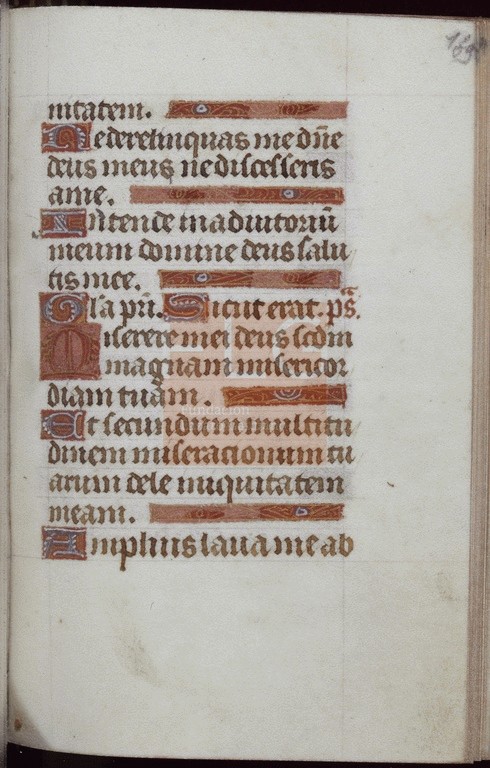 nitatem.
Ne derelinquas me dn̄e
deus meus ne discesseris
a me.
Intende in adiutoriū
meum domine deus salu
tis mee.
Gl̄a pr̄i. Sicut erat. p̄s.
Miserere mei deus scd̄m
magnam misericor
diam tuam.
Et secundum multitu
dinem miseracionum tu
arum dele iniquitatem
meam.
Amplius laua me ab